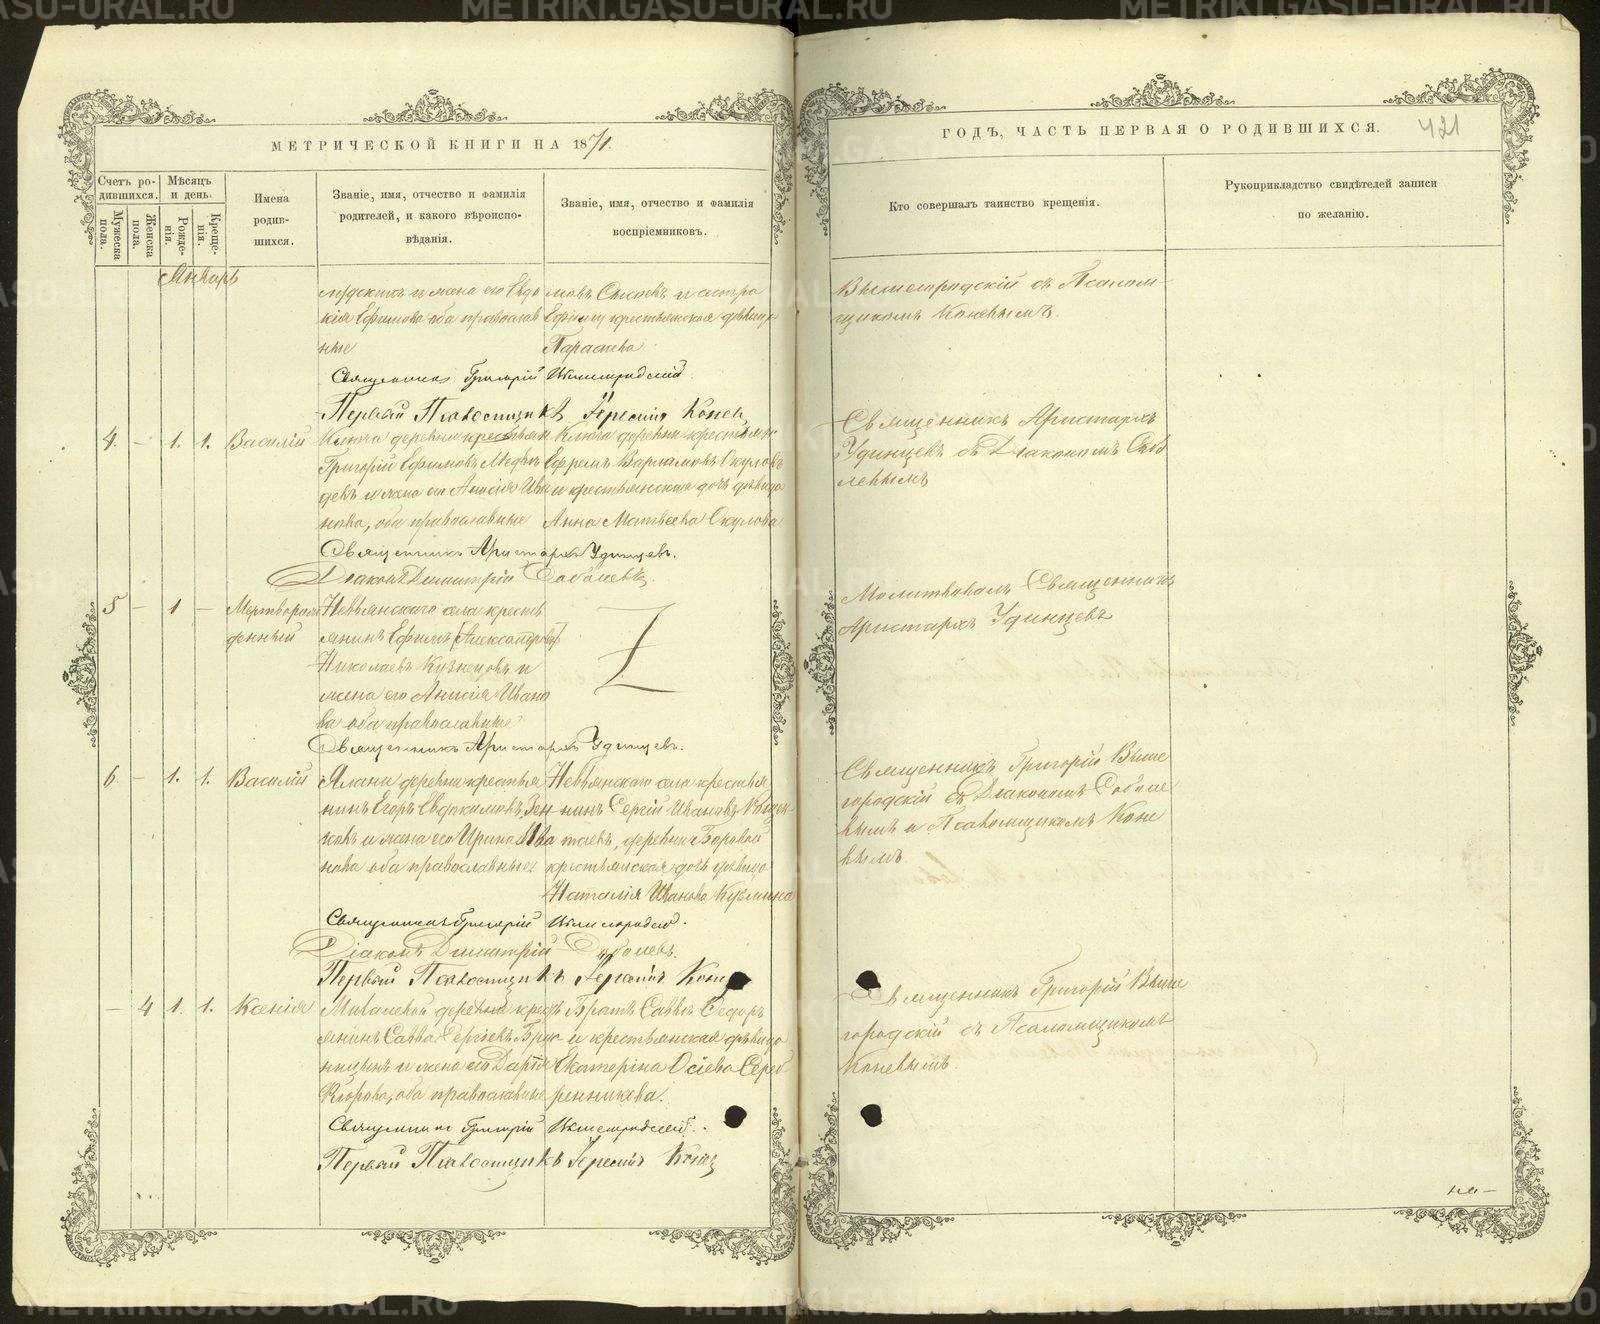 МЕТРИЧЕСКОЙ КНИГИ НА 1871.
Счетъ ро-
дившихся.
Мужеска
пола.
Женска
пола.
Мѣсяцъ
и день.
Рожде-
нія.
Креще-
нія.
Имена
родив-
шихся.
Званіе, имя, отчество и фамилія
родителей, и какого вѣроиспо-
вѣданія.
Званіе, имя, отчество и фамилія
воспріемниковъ.
Январь
и жена его Евдо
кія Ефимова оба православ
ные
и сестра
крестьянская дѣвица
Параскева
Священникъ Григорій Вышегородскій.
Первый Псаломщикъ Коневъ
4. — 1. 1. Василій
Ключа деревни крестьян
Григорій Ефимовъ Медвѣ
девъ и жена его Анисія Ива
нова, оба православные
Ключа деревни крестьянинъ
Ефремъ Варламовъ Окуловъ
и крестьянская дочь дѣвица
Анна Матвеева Окулова
Священникъ Аристархъ Удинцевъ.
Діаконъ Димитрій Соболевъ.
5 — 1 — Мертворож
денный
Невьянскаго села кресть
янинъ Ефимъ [Александровъ]
Николаевъ Кузнецовъ и
жена его Анисія Ивано
ва оба православные
Священникъ Аристархъ Удинцевъ.
6. — 1. 1. Василій
Ялани деревни крестья
нинъ Егоръ Евдокимовъ Зен
ковъ и жена его Ирина Ива
нова оба православные
Невьянскаго села крестья
нинъ Сергій Ивановъ
деревни Боровой
крестьянская дочь дѣвица
Наталія Иванова Кузмина
Священникъ Григорій Вышегородскій.
Діаконъ Димитрій Соболевъ.
Первый Псаломщикъ Коневъ
— 4 1. 1. Ксенія
деревни крест
янинъ Савва Сергіевъ
ницынъ и жена его Дарья
Егорова, оба православные
Братъ Саввы Ѳедоръ
и крестьянская дѣвица
Екатерина Осіева Сереб
ренникова.
Священникъ Григорій Вышегородскій.
Первый Псаломщикъ Коневъ
ГОДЪ, ЧАСТЬ ПЕРВАЯ О РОДИВШИХСЯ.
421
Кто совершалъ таинство крещенія.
Рукоприкладство свидѣтелей записи
по желанію.
Вышегородскій съ Псалом-
щикомъ Коневымъ.
Священникъ Аристархъ
Удинцевъ съ Діакономъ Собо
левымъ
Молитвовалъ Священникъ
Аристархъ Удинцевъ
Священникъ Григорій Выше
городскій съ Діакономъ Соболе
вымъ и Псаломщикомъ Коне
вымъ
Священникъ Григорій Выше
городскій съ Псаломщикомъ
Коневымъ.
METRIKI.GASU-URAL.RU